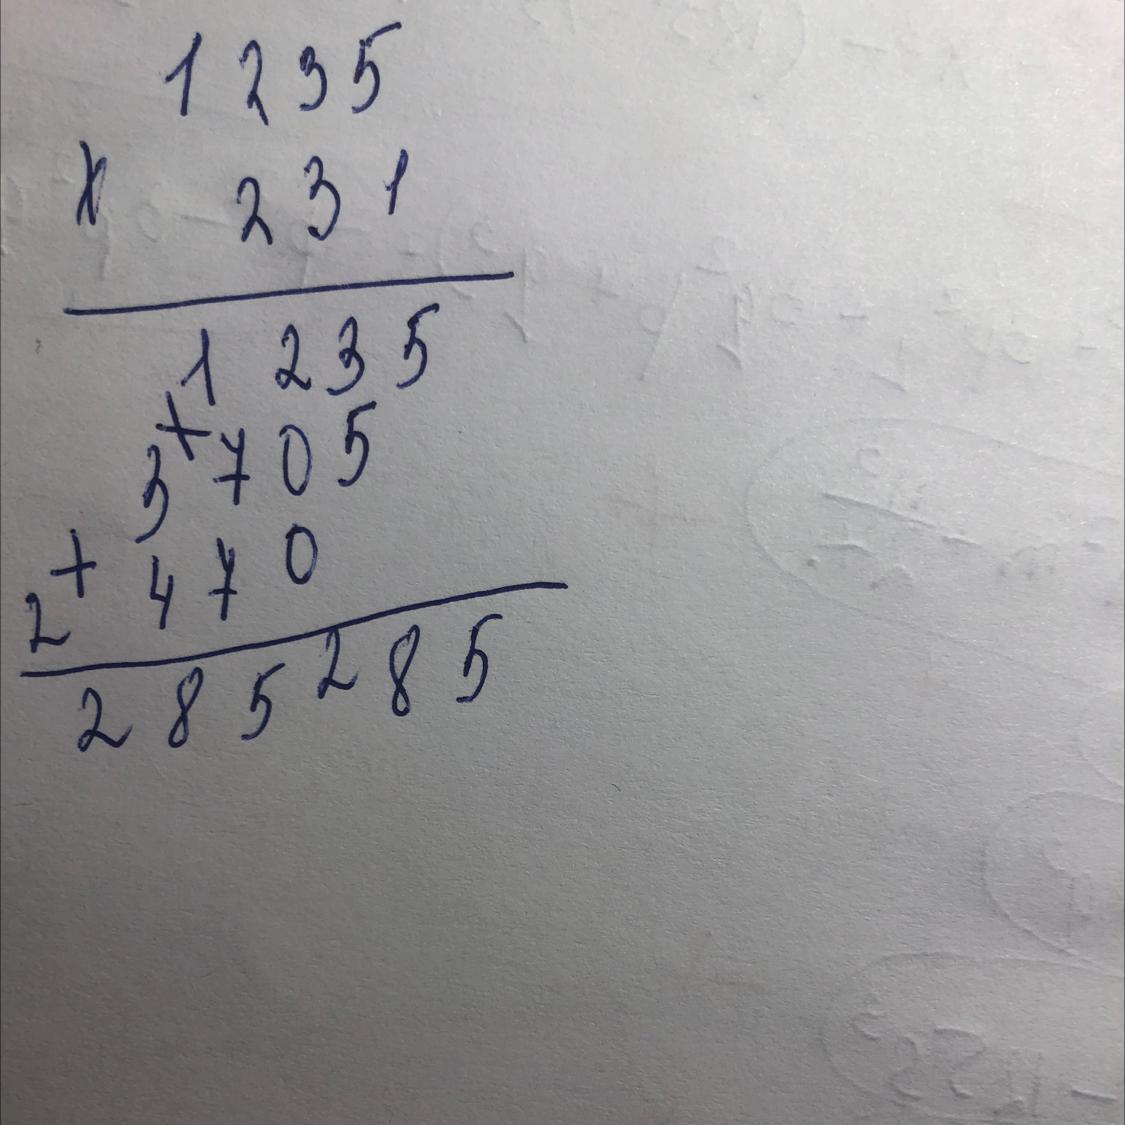 1 2 3 5
x 2 3 1
1 2 3 5
+ 3 7 0 5
+ 2 4 7 0
2 8 5 2 8 5